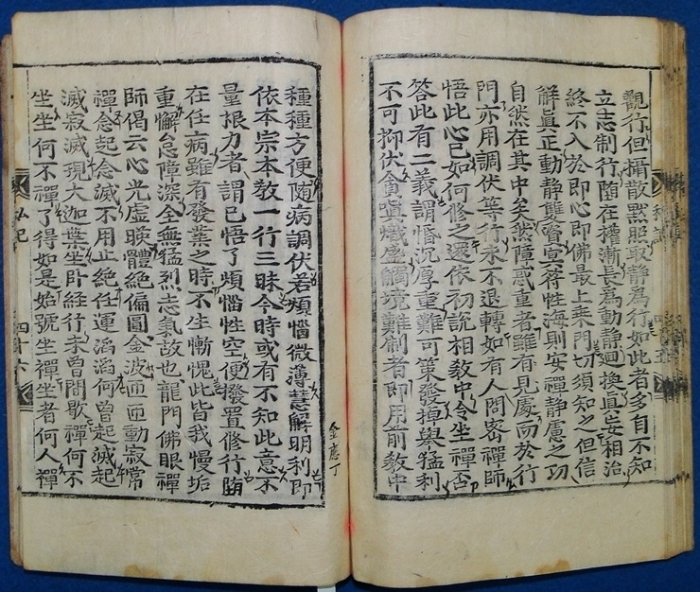 觀行但攝散黙照取靜爲行如此者多自不知
立志制行随在槽漸長爲動靜迴換真妄相治
終不入於即心即佛最上乘門切須知之但信
解真正動靜雙性海則安禪靜慮之功
自然在其中矣然障惑重者雖有見處而於行
門亦用調伏等行求不退轉如有人問密禪師
悟此心已如何修之還依初說相敎中令坐禪否
答此有二義謂惛沉厚重難可策發掉與猛利
不可抑伏貪嗔熾盛觸境難制者即用前敎中
種種方便随病調伏若煩惱微薄慧解明利即
依本宗本敎一行三昧今時或有不知此意不
量根力者謂已悟了煩惱性空便撥置修行随
在任病雖有發業之時不生慚愧此皆我慢垢
重懈怠障深全無猛烈志氣故也龍門佛眼禪
師偈云心光虛暎體絶偏圓金波匝匝動寂常
禪念起念滅不用止絶任運滔滔何曾起滅起
滅寂滅現大迦葉坐卧經行未曾間歇禪何不
坐坐何不禪了得如是始號坐禪坐者何人禪
金應丁
私記
四十六